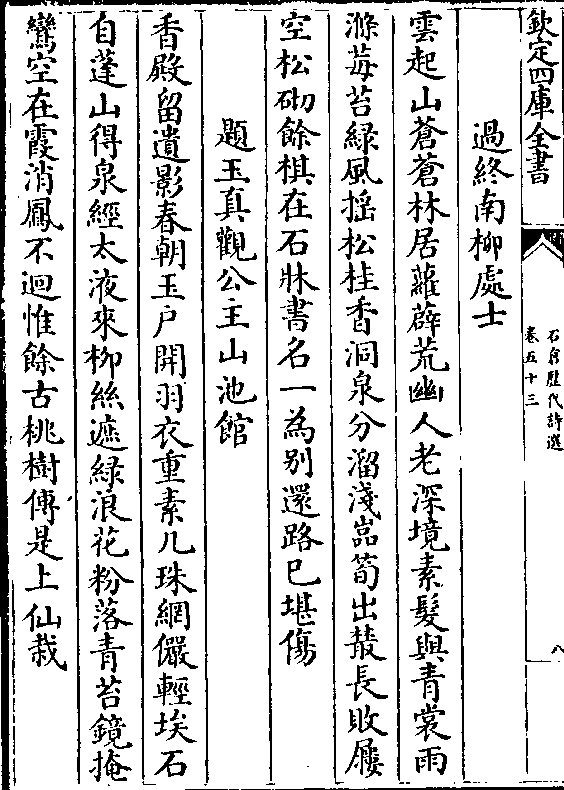 欽定四庫全書
石倉歷代詩選
卷五十三
八
過終南柳處士
雲起山蒼蒼林居蘿薜荒幽人老深境素髮與青裳雨
滌莓苔綠風揺松桂香洞泉分溜淺嵓筍出叢長敗屧
空松砌餘棋在石牀書名一為别還路已堪傷
題玉真觀公主山池館
香殿留遺影春朝玉戸開羽衣重素几珠網儼輕埃石
自蓬山得泉經太液來柳絲遮緑浪花粉落青苔鏡掩
鸞空在霞消鳳不迴惟餘古桃樹傳是上仙栽